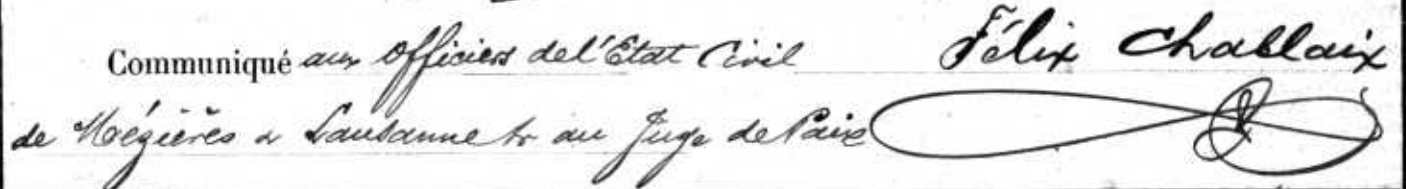 Communiqué aux Officiers de l'Etat Civil
Félix Chablaix
de Mézières & Lausanne & au Juge de Paix